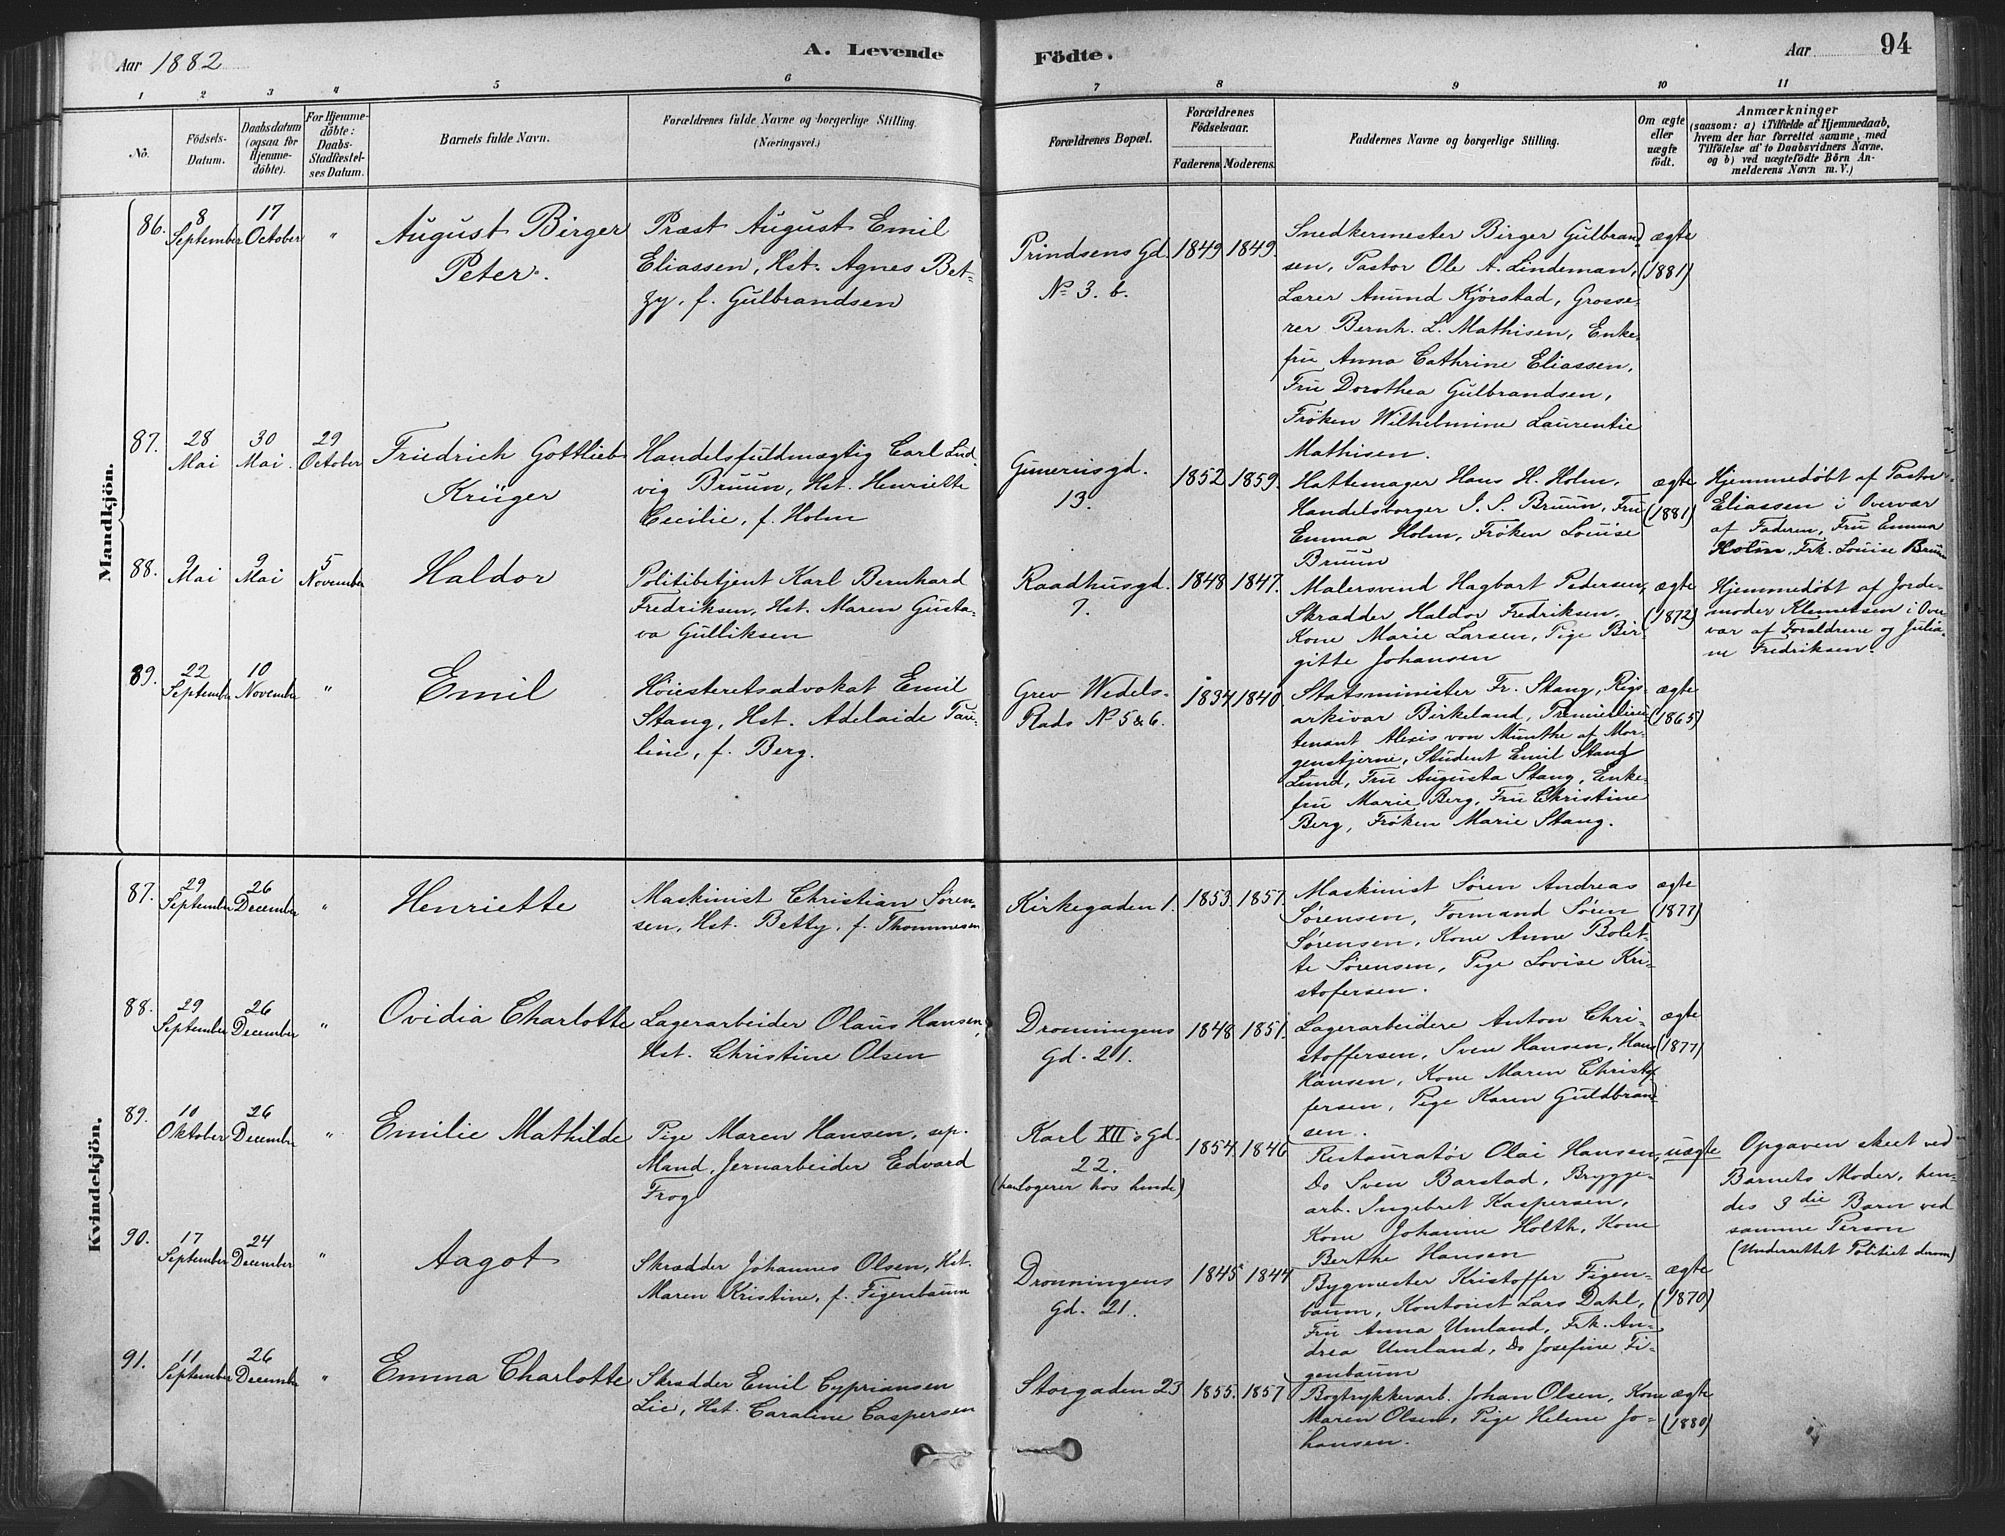 Aar 1882
A. Levende
Födte.
Aar
94
1 2 3 4 5 6 7 8 9 10 11
No.
Födsels-
Datum.
Daabsdatum
(ogsaa for
Hjemme-
döbte).
For Hjemme-
döbte:
Daabs-
Stadfæstel-
ses Datum.
Barnets fulde Navn.
Forældrenes fulde Navne og borgerlige Stilling.
(Næringsvei.)
Forældrenes Bopæl.
Forældrenes
Födselsaar.
Faderens. Moderens.
Faddernes Navne og borgerlige Stilling.
Om ægte
eller
uægte
födt.
Anmærkninger
(saasom: a) i Tilfælde af Hjemmedaab,
hvem der har forrettet samme, med
Tilföielse af to Daabsvidners Navne,
og b) ved uægtefödte Börn An-
melderens Navn m. V.)
Mandkjön.
86.
8
September
17
October
"
August Birger
Peter.
Præst August Emil
Eliassen, Hst. Agnes Bet-
zy, f. Gulbrandsen
Prindsens Gd.
No 3. b.
1849 1849.
Snedkermester Birger Gulbrand
sen, Pastor Ole A. Lindeman,
Lærer Anund Kjørstad, Grosse-
rer Bernh. L. Mathisen, Enke-
fru Anna Cathrine Eliassen,
Fru Dorothea Gulbrandsen,
Frøken Wilhelmine Laurentie
Mathisen.
ægte
(1881)
87.
28
Mai
30
Mai.
29
October
Friedrich Gottlieb
Krüger
Handelsfuldmægtig Carl Lud-
vig Bruun, Hst. Henriette
Cecilie, f. Holm
Gunerusgd.
13.
1852 1859.
Hattemager Hans H. Holm,
Handelsborger J. S. Bruun, Fru
Emma Holm, Frøken Louise
Bruun
ægte
(1881)
Hjemmedøbt af Pastor
Eliassen i Overvær
af Faderen, Fru Emma
Holm, Frk. Louise Bruun
88.
9
Mai
9
Mai
5
November
Haldor
Politibetjent Karl Bernhard
Fredriksen, Hst. Maren Gusta-
va Gulliksen
Raadhusgd.
7.
1848 1847.
Malersvend Hagbart Pedersen,
Skrædder Haldor Fredriksen,
Kone Marie Larsen, Pige Bir-
gitte Johansen
ægte
(1872)
Hjemmedøbt af Jorde-
moder Klemetsen i Over-
vær af Forældrene og Julia-
ne Fredriksen.
89.
22
September
10
November
"
Emil
Høiesteretsadvokat Emil
Stang, Hst. Adelaide Pau-
line, f. Berg.
Grev Wedels-
Plads No 5 & 6.
1834 1840.
Statsminister Fr. Stang, Rigs-
arkivar Birkeland, Premierlieu-
tenant Alexis von Munthe af Mor-
genstjerne, Student Emil Stang
Lund, Fru Augusta Stang, Enke-
fru Marie Berg, Fru Christine
Berg, Frøken Marie Stang.
ægte
(1865)
Kvindekjön.
87.
29
September
26
December
"
Henriette
Maskinist Christian Søren-
sen, Hst. Betty, f. Thommesen
Kirkegaden 1.
1853. 1857.
Maskinist Søren Andreas
Sørensen, Formand Søren
Sørensen, Kone Anne Bolet-
te Sørensen, Pige Lovise Kri-
stofersen.
ægte
(1877)
88.
29
September
26
December
"
Ovidia Charlotte
Lagerarbeider Olaus Hansen,
Hst. Christine Olsen
Dronningens
Gd. 21.
1848 1851.
Lagerarbeidere Anton Chri-
stoffersen, Sven Hansen, Hans
Hansen, Kone Maren Christof
fersen, Pige Karen Guldbrand
sen.
ægte
(1877)
89.
10
Oktober
26
December
"
Emilie Mathilde
Pige Maren Hansen, sep.
Mand, Jernarbeider Edvard
Frog
Karl XII's Gd.
22.
(han logerer hos hende)
1854. 1846
Restauratør Olai Hansen,
Do Sven Barstad, Brygge-
arb. Ingebret Kaspersen,
Kone Johanne Holth, Kone
Berthe Hansen
uægte
Opgaven skeet ved
Barnets Moder, hen-
des 3die Barn ved
samme Person
(Underrettet Politiet derom)
90.
17
September
24
December
"
Aagot
Skrædder Johannes Olsen, Hst.
Maren Kristine, f. Figenbaum
Dronningens
Gd. 21.
1845 1844
Bygmester Kristoffer Figen-
baum, Kontorist Lars Dahl,
Fru Anna Umland, Frk. An-
drea Umland, Do Josefine Fi-
genbaum
ægte
(1870)
91.
11
September
26
December
"
Emma Charlotte
Skrædder Emil Cypriansen
Lie, Hst. Caroline Caspersen
Storgaden 23
1855. 1857
Bogtrykkerarb. Johan Olsen, Kone
Maren Olsen, Pige Helene Jo-
hansen.
ægte
(1880)